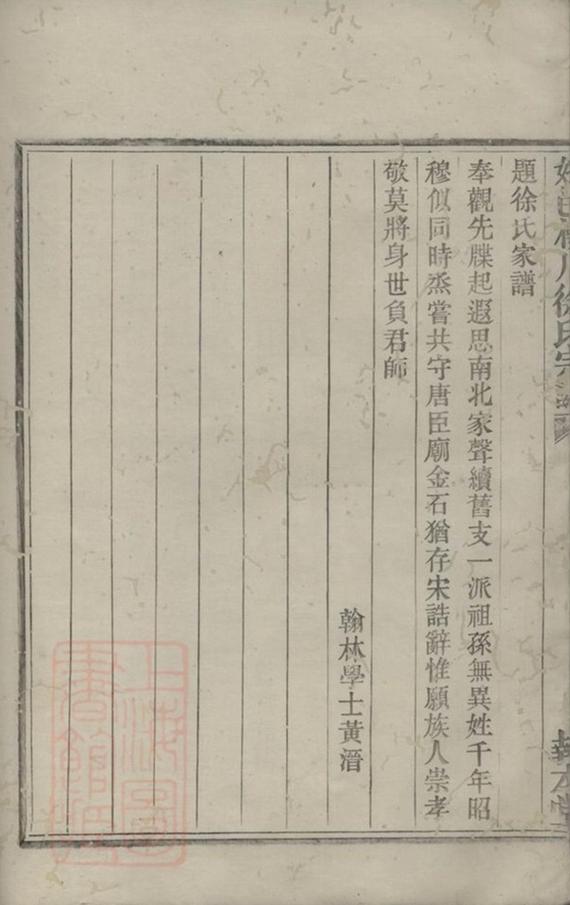 題徐氏家譜
奉觀先牒起遐思南北家聲續舊支一派祖孫無異姓千年昭
穆似同時烝嘗共守唐臣廟金石猶存宋誥辭惟願族人崇孝
敬莫將身世負君師
翰林學士黃溍
上海圖書館藏